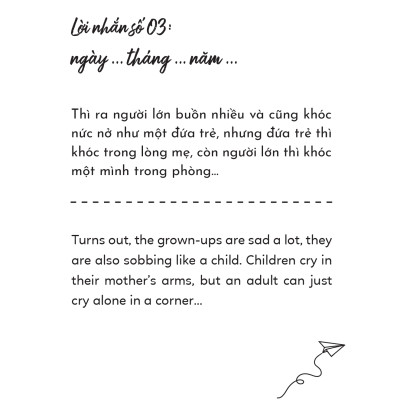 Lời nhắn số 03:
ngày ... tháng ... năm ...
Thì ra người lớn buồn nhiều và cũng khóc
nức nở như một đứa trẻ, nhưng đứa trẻ thì
khóc trong lòng mẹ, còn người lớn thì khóc
một mình trong phòng...
Turns out, the grown-ups are sad a lot, they
are also sobbing like a child. Children cry in
their mother's arms, but an adult can just
cry alone in a corner...